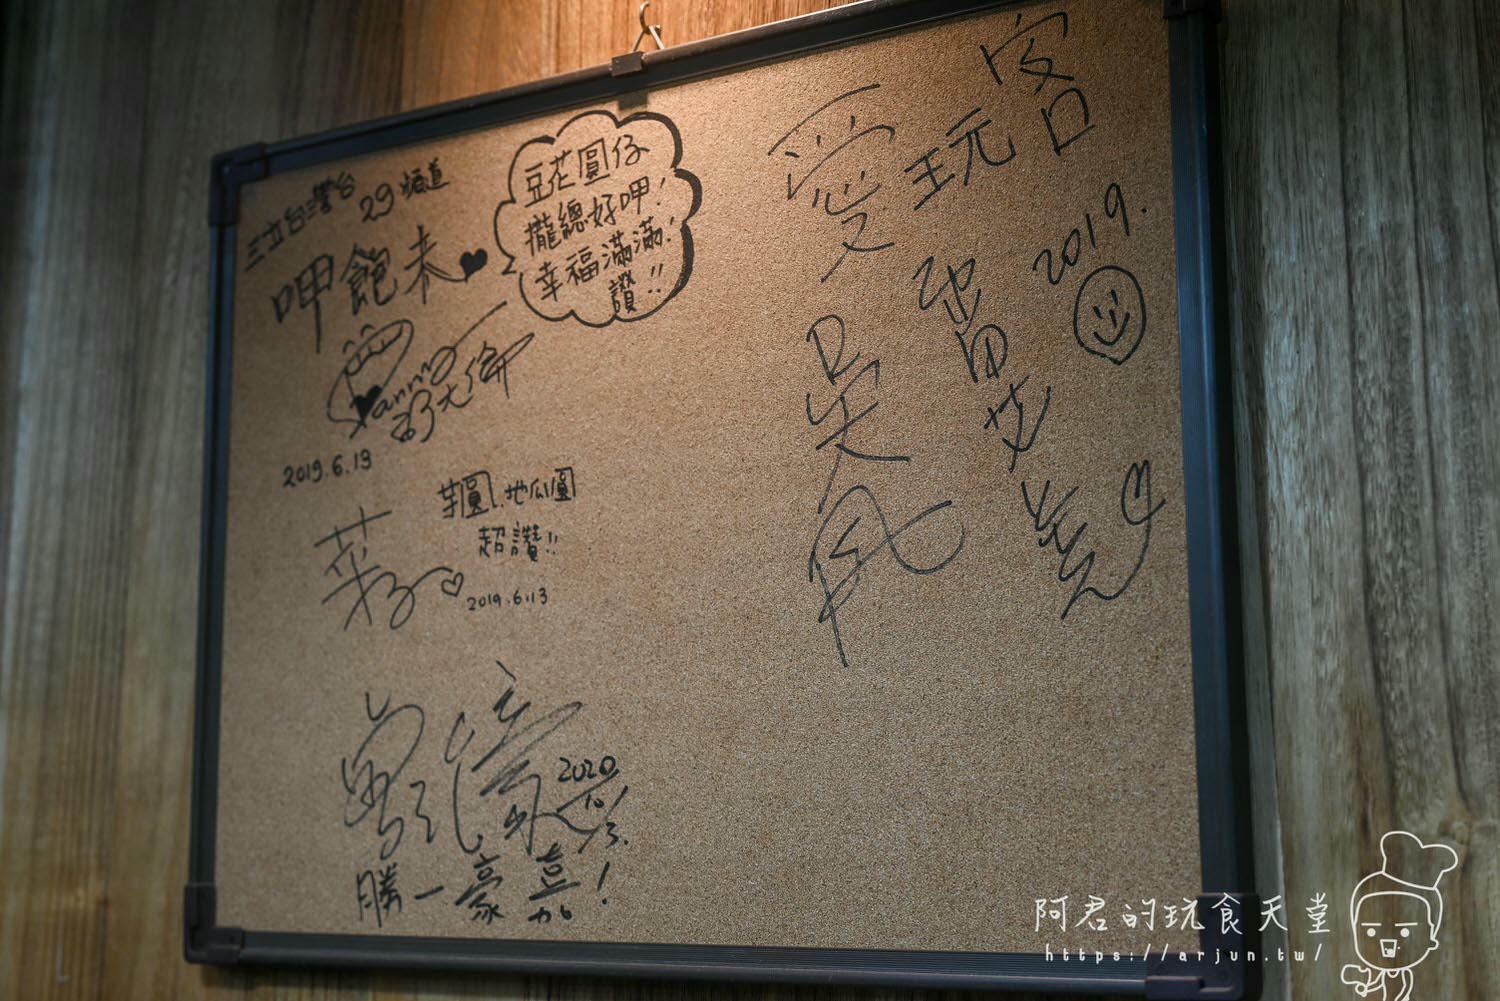 三立台灣台
29頻道
呷飽未
豆花圓仔
攏總好呷!
幸福滿滿!
讚!!
2019.6.13
芋圓、地瓜圓
超讚!!
2019.6.13
2020
10/3.
勝一豪嘉!
愛玩客
吳鳳
2019.
阿君的玩食天堂
https://arjun.tw/